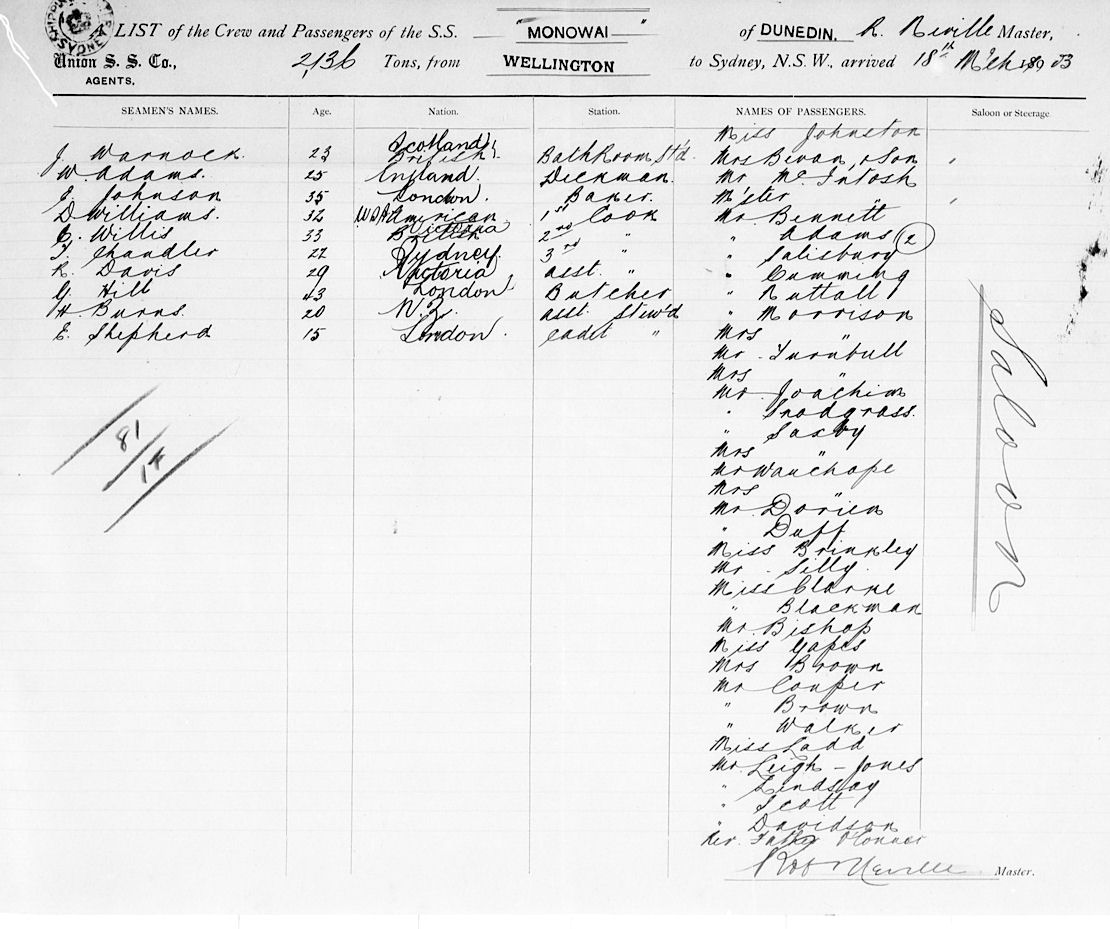 A LIST of the Crew and Passengers of the S.S. "MONOWAI" of DUNEDIN, R. Neville Master,
Union S. S. Co., 2,136 Tons, from WELLINGTON to Sydney, N.S.W., arrived 18th M'ch 1893
AGENTS,
SEAMEN'S NAMES. Age. Nation. Station. NAMES OF PASSENGERS. Saloon or Steerage
Miss Johnston
J. Warnock. 23 Scotland British. BathRoom St'd Mrs Bevan & Son
W. Adams. 25 England. Deckman. Mr McIntosh
J. Johnson 35 London. Baker. M'ster "
D Williams. 32 USA American 1st Cook Mr Bennett
C. Willis 33 Victoria 2nd " " Adams (2)
T. Chandler 22 Sydney. 3rd " " Salisbury
R. Davis 29 Victoria asst. " " Cumming
G. Hill 43 London Butcher " Nuttall
H. Burns. 20 N.Z. asst Stew'd " Morrison
E. Shepherd 15 London. Cadet " Mrs "
Mr Turnbull
Mrs "
Mr Joachim
" Snodgrass.
" Saxby
Mrs "
Mr Wauchope
Mrs "
Mr Dorien
" Duff
Miss Brinkley
Mr Silly
Miss Clarke
" Blackman
Mr Bishop
Miss Gapes
Mrs Brown
Mr Couper
" Brown
" Walker
Miss Ladd
Mr Leigh - Jones
" Lindsay
" Scott
" Davidson
Rev. Father O'Connor
Rob Neville Master.
Saloon
81